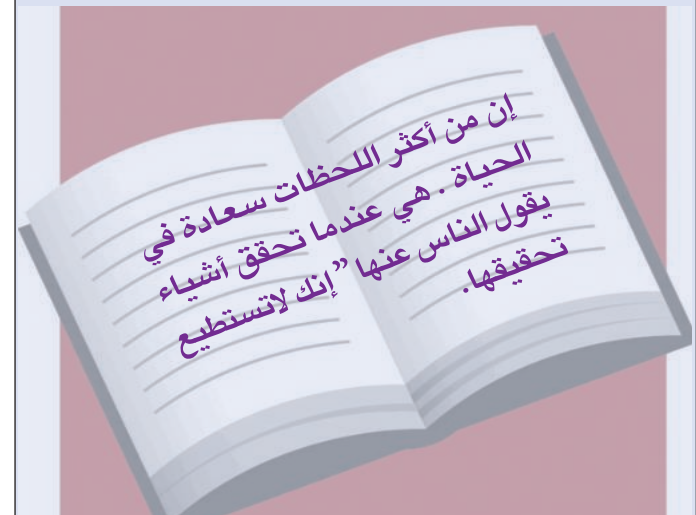 إن من أكثر اللحظات سعادة في
الحياة . هي عندما تحقق أشياء
يقول الناس عنها ”إنك لاتستطيع
تحقيقها.